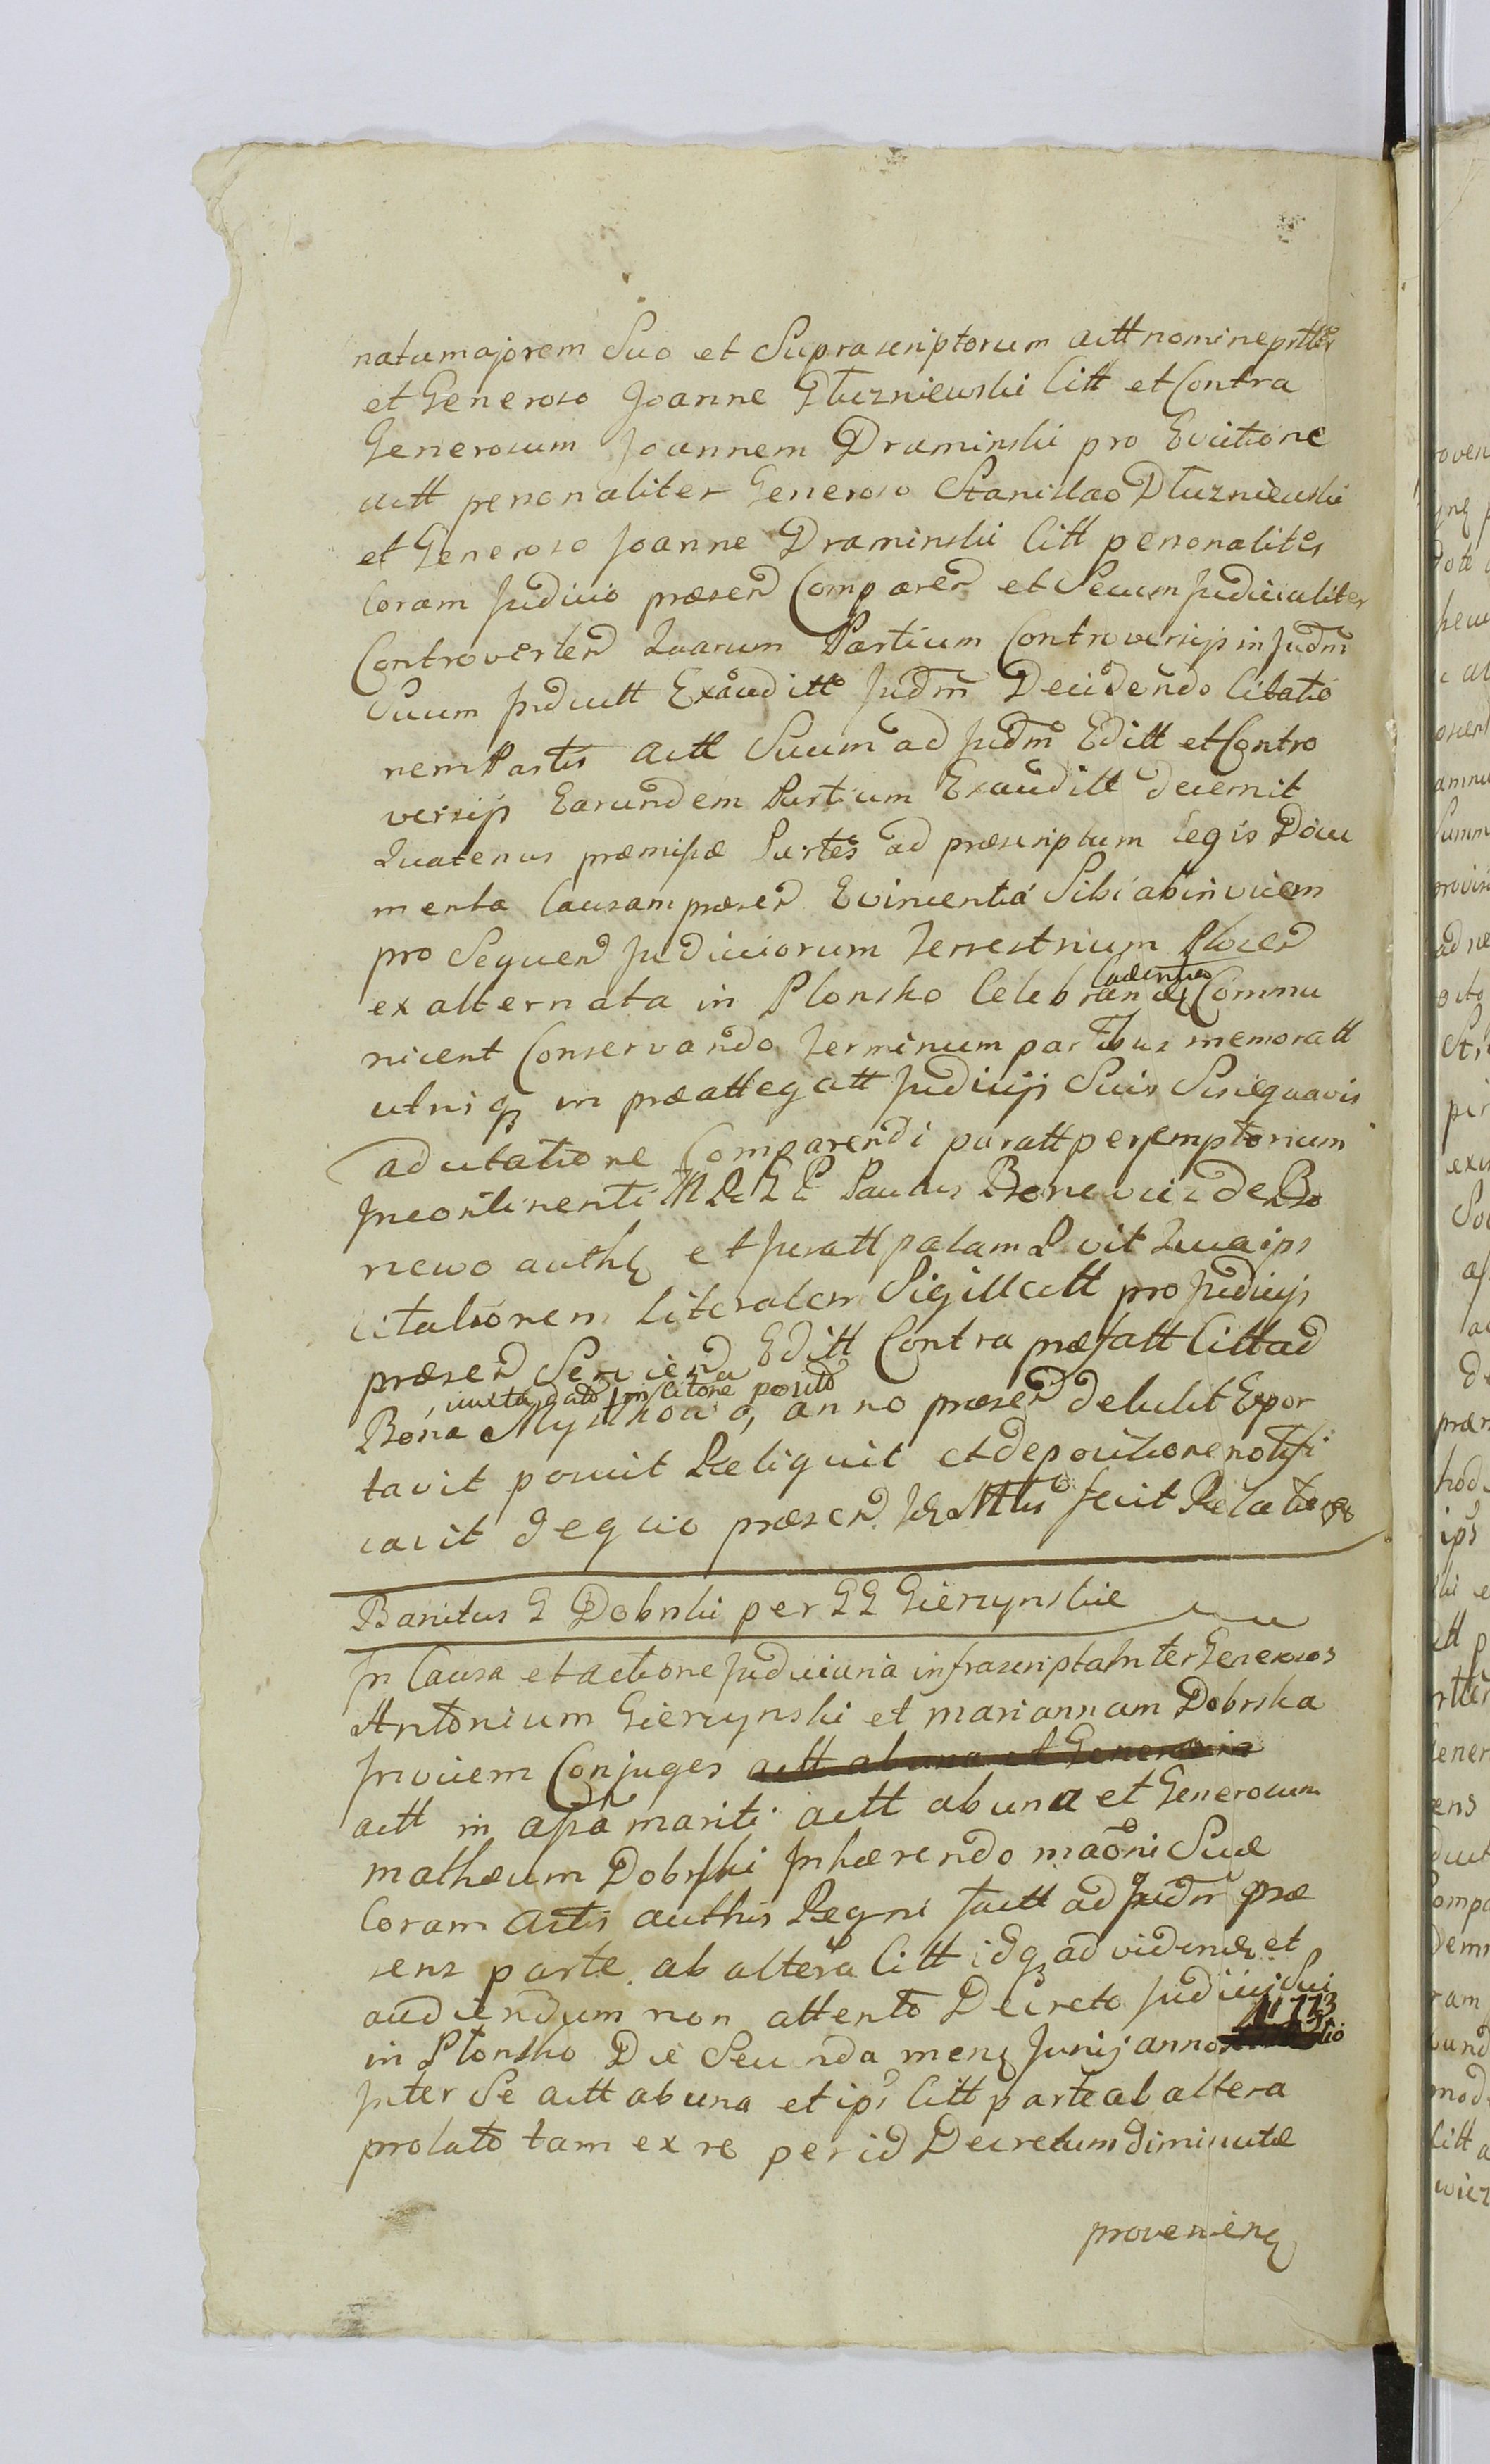 natumajorem Suo et Suprascriptorum actt nomine prttr
et Generoso Joanne Dłuzniewski Citt et Contra
Generosum Joannem Draminski pro Evictione
actt personaliter Generoso Stanislao Dłuzniewski
et Generoso Joanne Draminski Citt personaliter
Coram Judicio præsen Comparen et Secum Judicialiter
Controverten Quarum Partium Controversijs in Judm
Suum Exauditt Judm Decidendo Citatio
nem Partis Actt Suum ad Judm Editt et Contro
versijs Earundem Partium Exauditt decernit
Quatenus præmissæ Partes ad præscriptum legis Docu
menta Causam præsen Evincentia Sibi abinvicem
pro Sequen Judiciorum terrestrium Plocen
ex alternata in Plonsko Celebran Cadentia Commu
nicent Conservando terminum partibus memoratt
utrisq in præallegatt Judicijs Suis Sine quavis
adcitatione Comparendi paratt peremptorium
Incontinenti Paulus Bonewicz de Bo
newo auths et Juratt palam R vit Quia ips
citationem literalem Sigillatt pro Judicijs
præsen Servien Editt Contra præfatt Citt ad
iuxta dato in Citone posito
Bona Mystkowo, anno præsen detulit Expor
tavit posuit Reliquit et de positione notifi
cavit de quo præsen fecit Relatione
Banitus G Dobrski per GG Gierzynskie
In Causa et actione Judiciaria infrascripta Inter Generosos
Antonium Gierzynski et mariannam Dobrska
Invicem Conjuges actt ab una et Generosum
actt in assa mariti actt ab una et Generosum
mathæum Dobrski Inhærendo maoni Suæ
Coram Actis authis Regni factt ad Judm præ
sens parte ab altera Citt idq ad viden et
audiendum non attento Decreto Judicij Sui
in Plonsko Die Secunda mens Junij anno 1773tio
Inter Se actt ab una et ips Citt parte ab altera
prolato tam ex re per id Decretum diminutæ
provenien